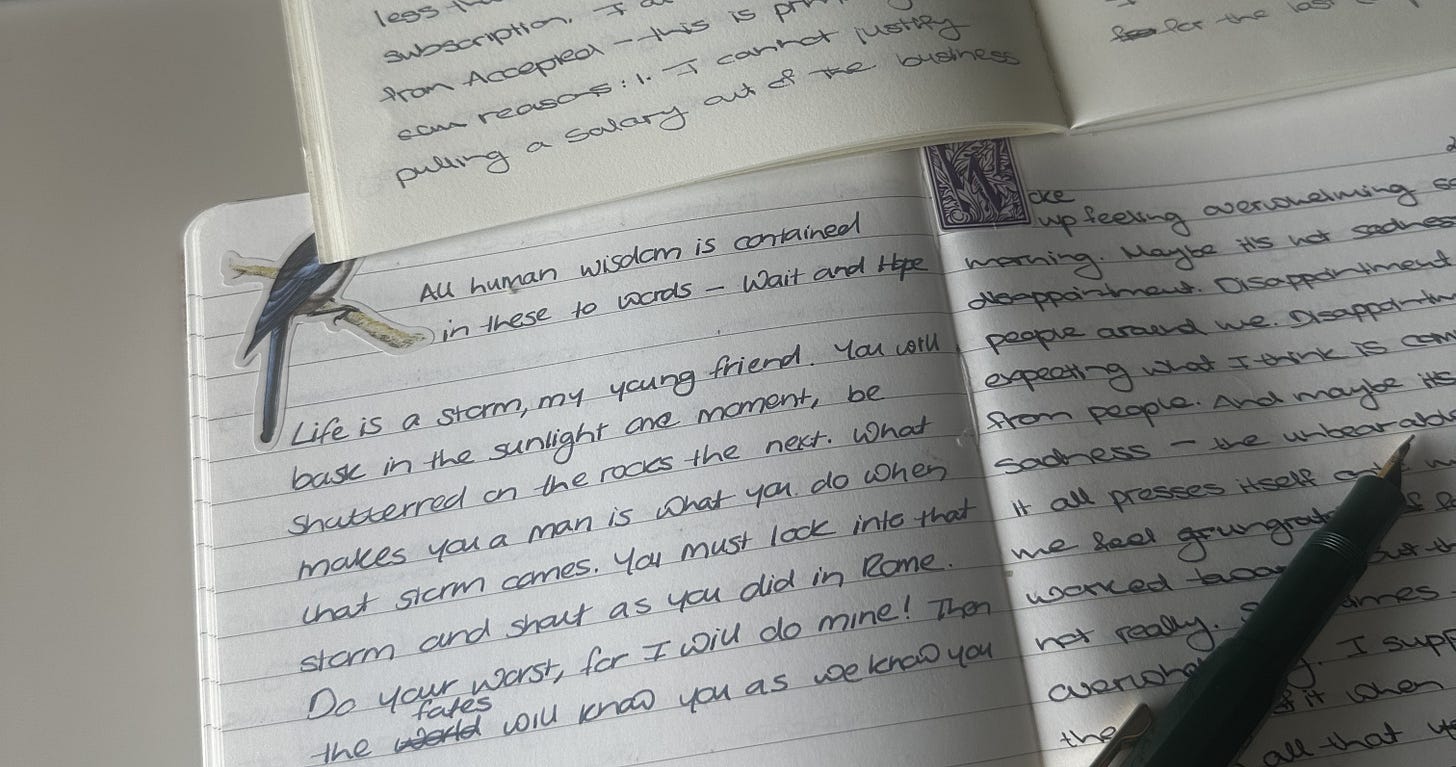 less
subscription. I
from Accepted - this is
reasons: 1. I cannot justify
pulling a salary out of the business
for the last
All human wisdom is contained
in these to words - Wait and Hope
Life is a storm, my young friend. You will
bask in the sunlight one moment, be
shatterred on the rocks the next. What
makes you a man is what you do when
that storm comes. You must look into that
storm and shout as you did in Rome.
Do your worst, for I will do mine! Then
the fates will know you as we know you
W oke
up feeling overwhelming
morning. Maybe it's not sadness
disappointment. Disappointment
people around me.
expecting what I think is
from people. And maybe its
sadness - the unbearable
it all presses itself
me feel
worked
not really.
I
the it when
all that